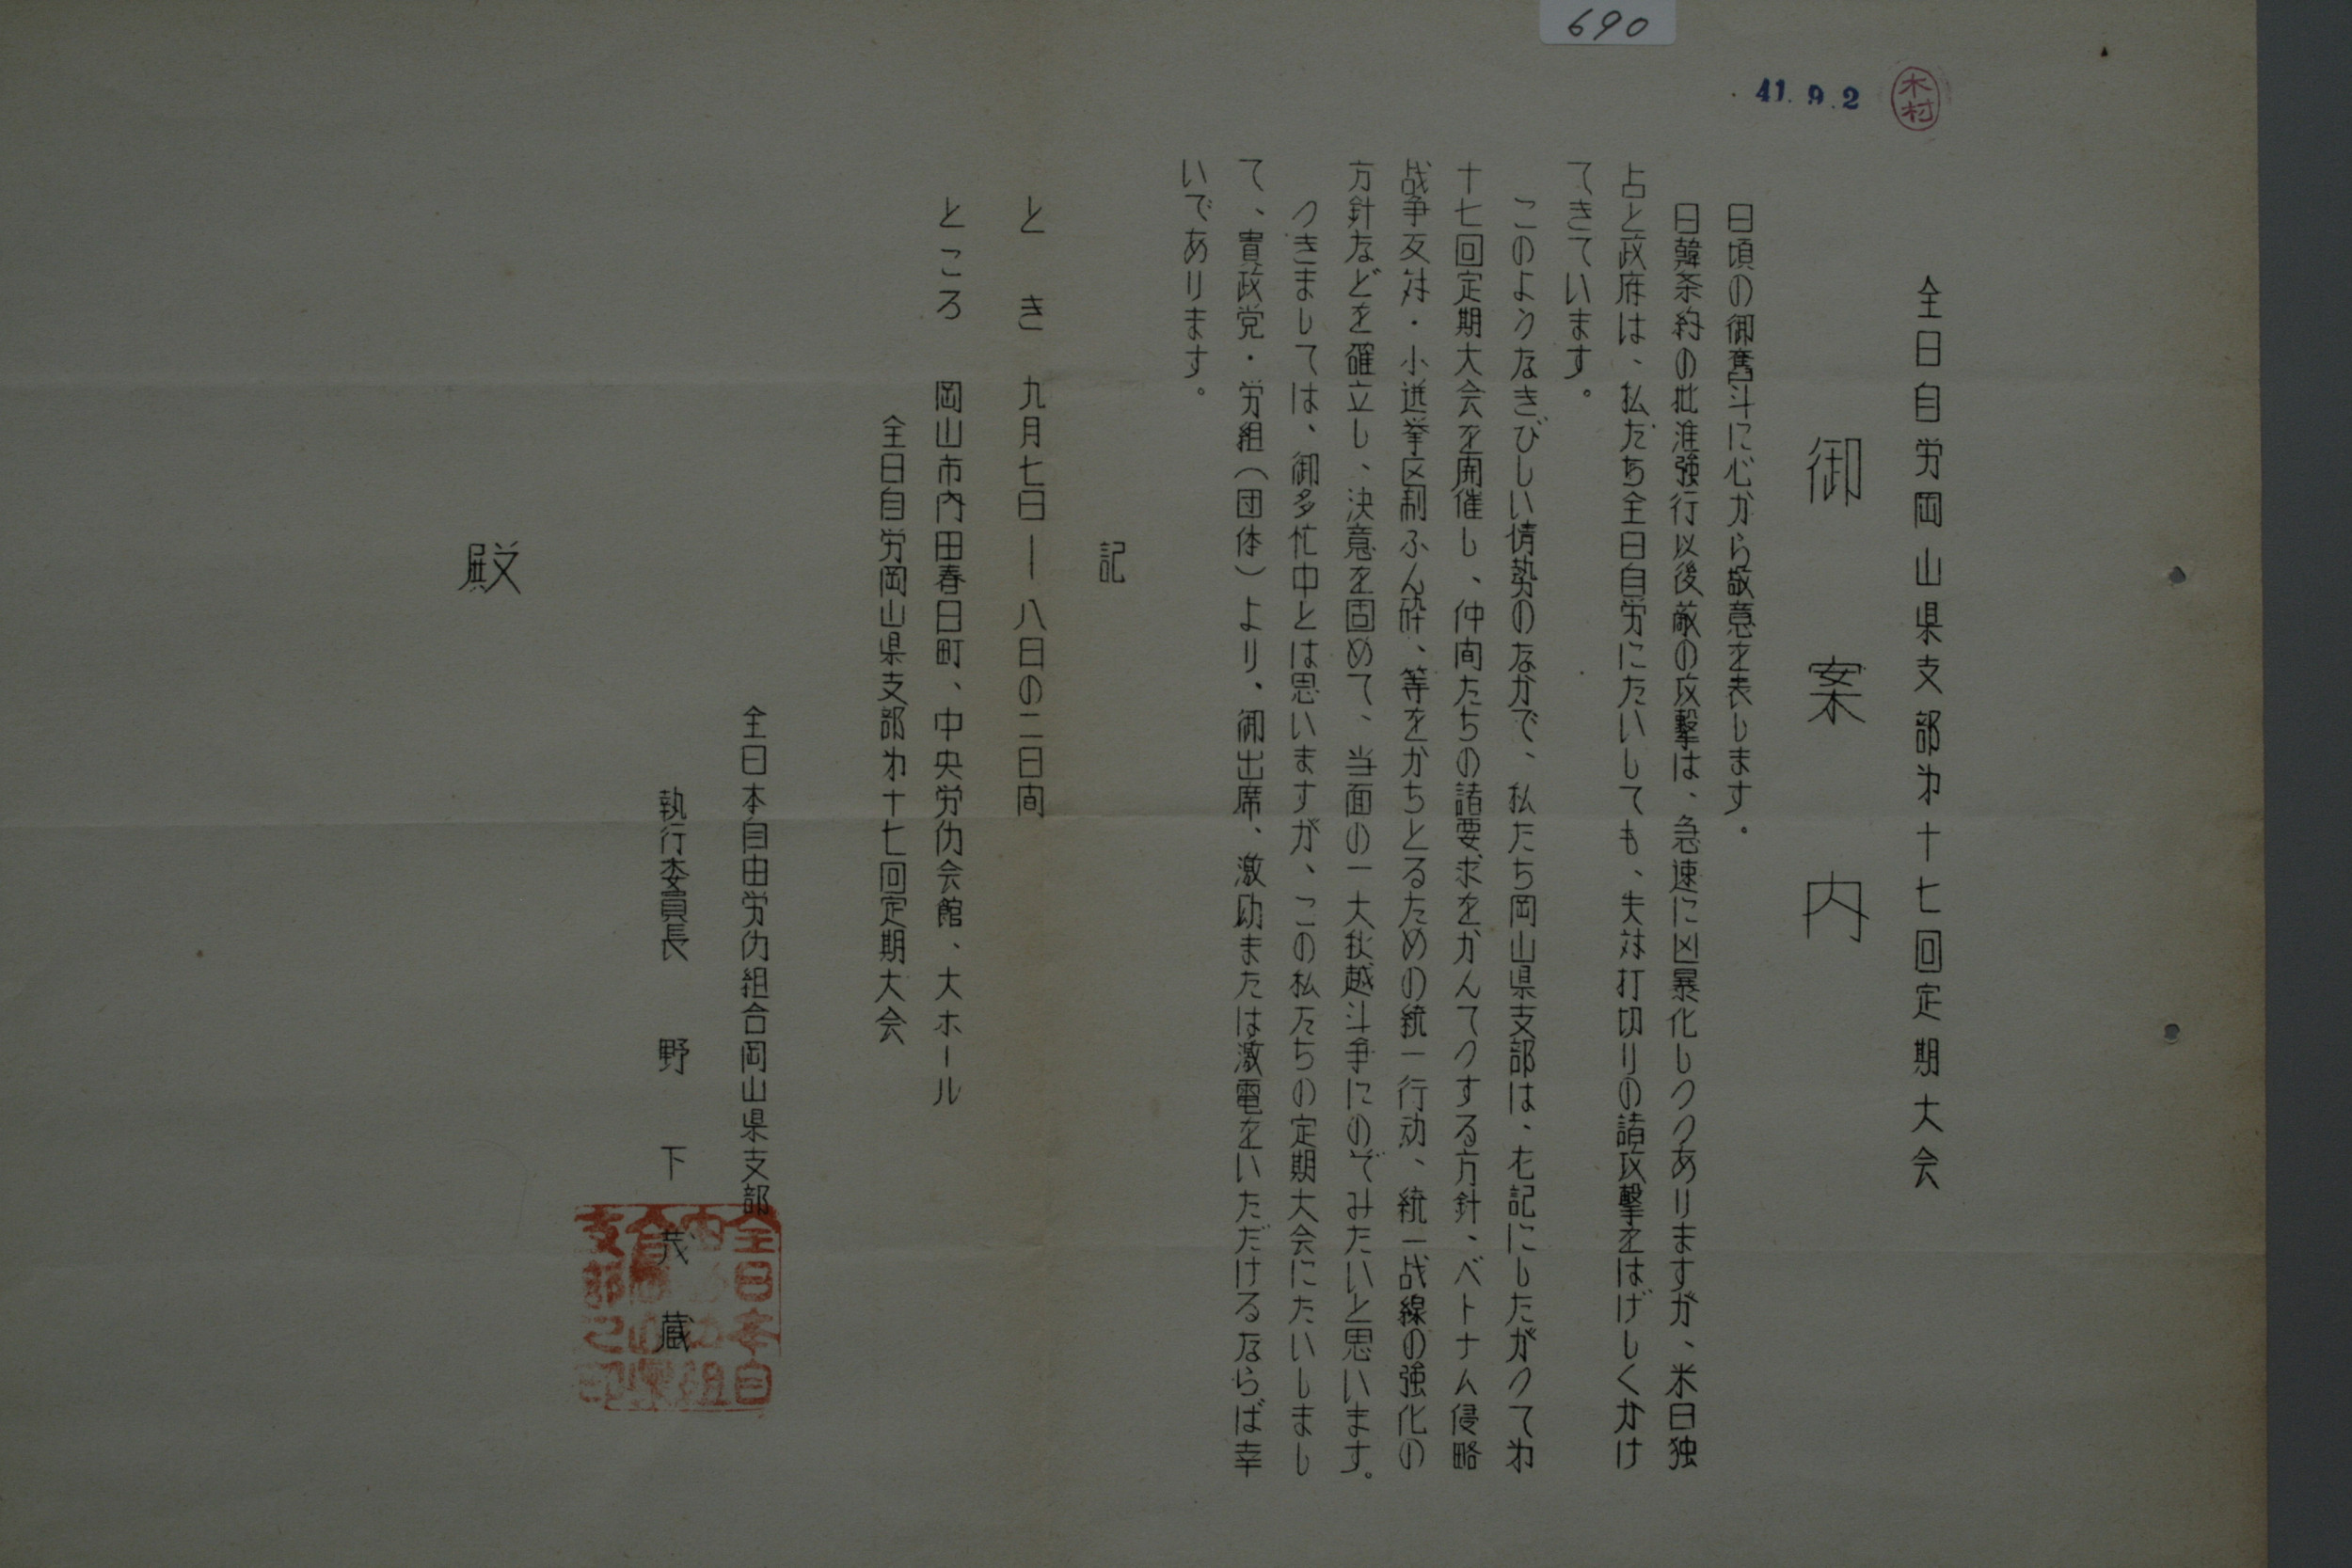 690
41.9.2
木村
全日自労岡山県支部才十七回定期大会
御案内
日頃の御奮斗に心から敬意を表します。
日韓条約の批准強行以後敵の攻撃は、急速に凶暴化しつつありますが、米日独
占と政府は、私たち全日自労にたいしても、失対打切りの諸攻撃をはげしくかけ
てきています。
このようなきびしい情勢のなかで、私たち岡山県支部は、左記にしたがつて才
十七回定期大会を開催し、仲間たちの諸要求をかんてつする方針、ベトナム侵略
战争反対・小選挙区制ふん砕、等をかちとるための統一行动、統一战線の強化の
方針などを確立し、決意を固めて、当面の一大秋越斗争にのぞみたいと思います。
つきましては、御多忙中とは思いますが、この私たちの定期大会にたいしまし
て、貴政党・労組（団体）より、御出席、激励または激電をいただけるならば幸
いであります。
記
とき 九月七日ー八日の二日間
ところ 岡山市内田春日町、中央労仂会館、大ホール
全日自労岡山県支部才十七回定期大会
全日本自由労仂組合岡山県支部
執行委員長 野下茂蔵
全日本自
由労仂組
合岡山県
支部之印
殿